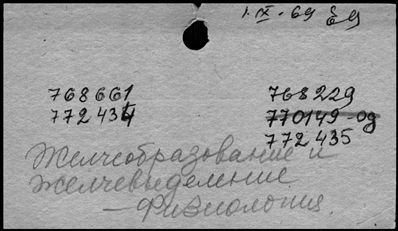 1.IX.69
768661
772434
768229
770149-од
772435
Желчеобразование и
желчевыделение
— Физиология.